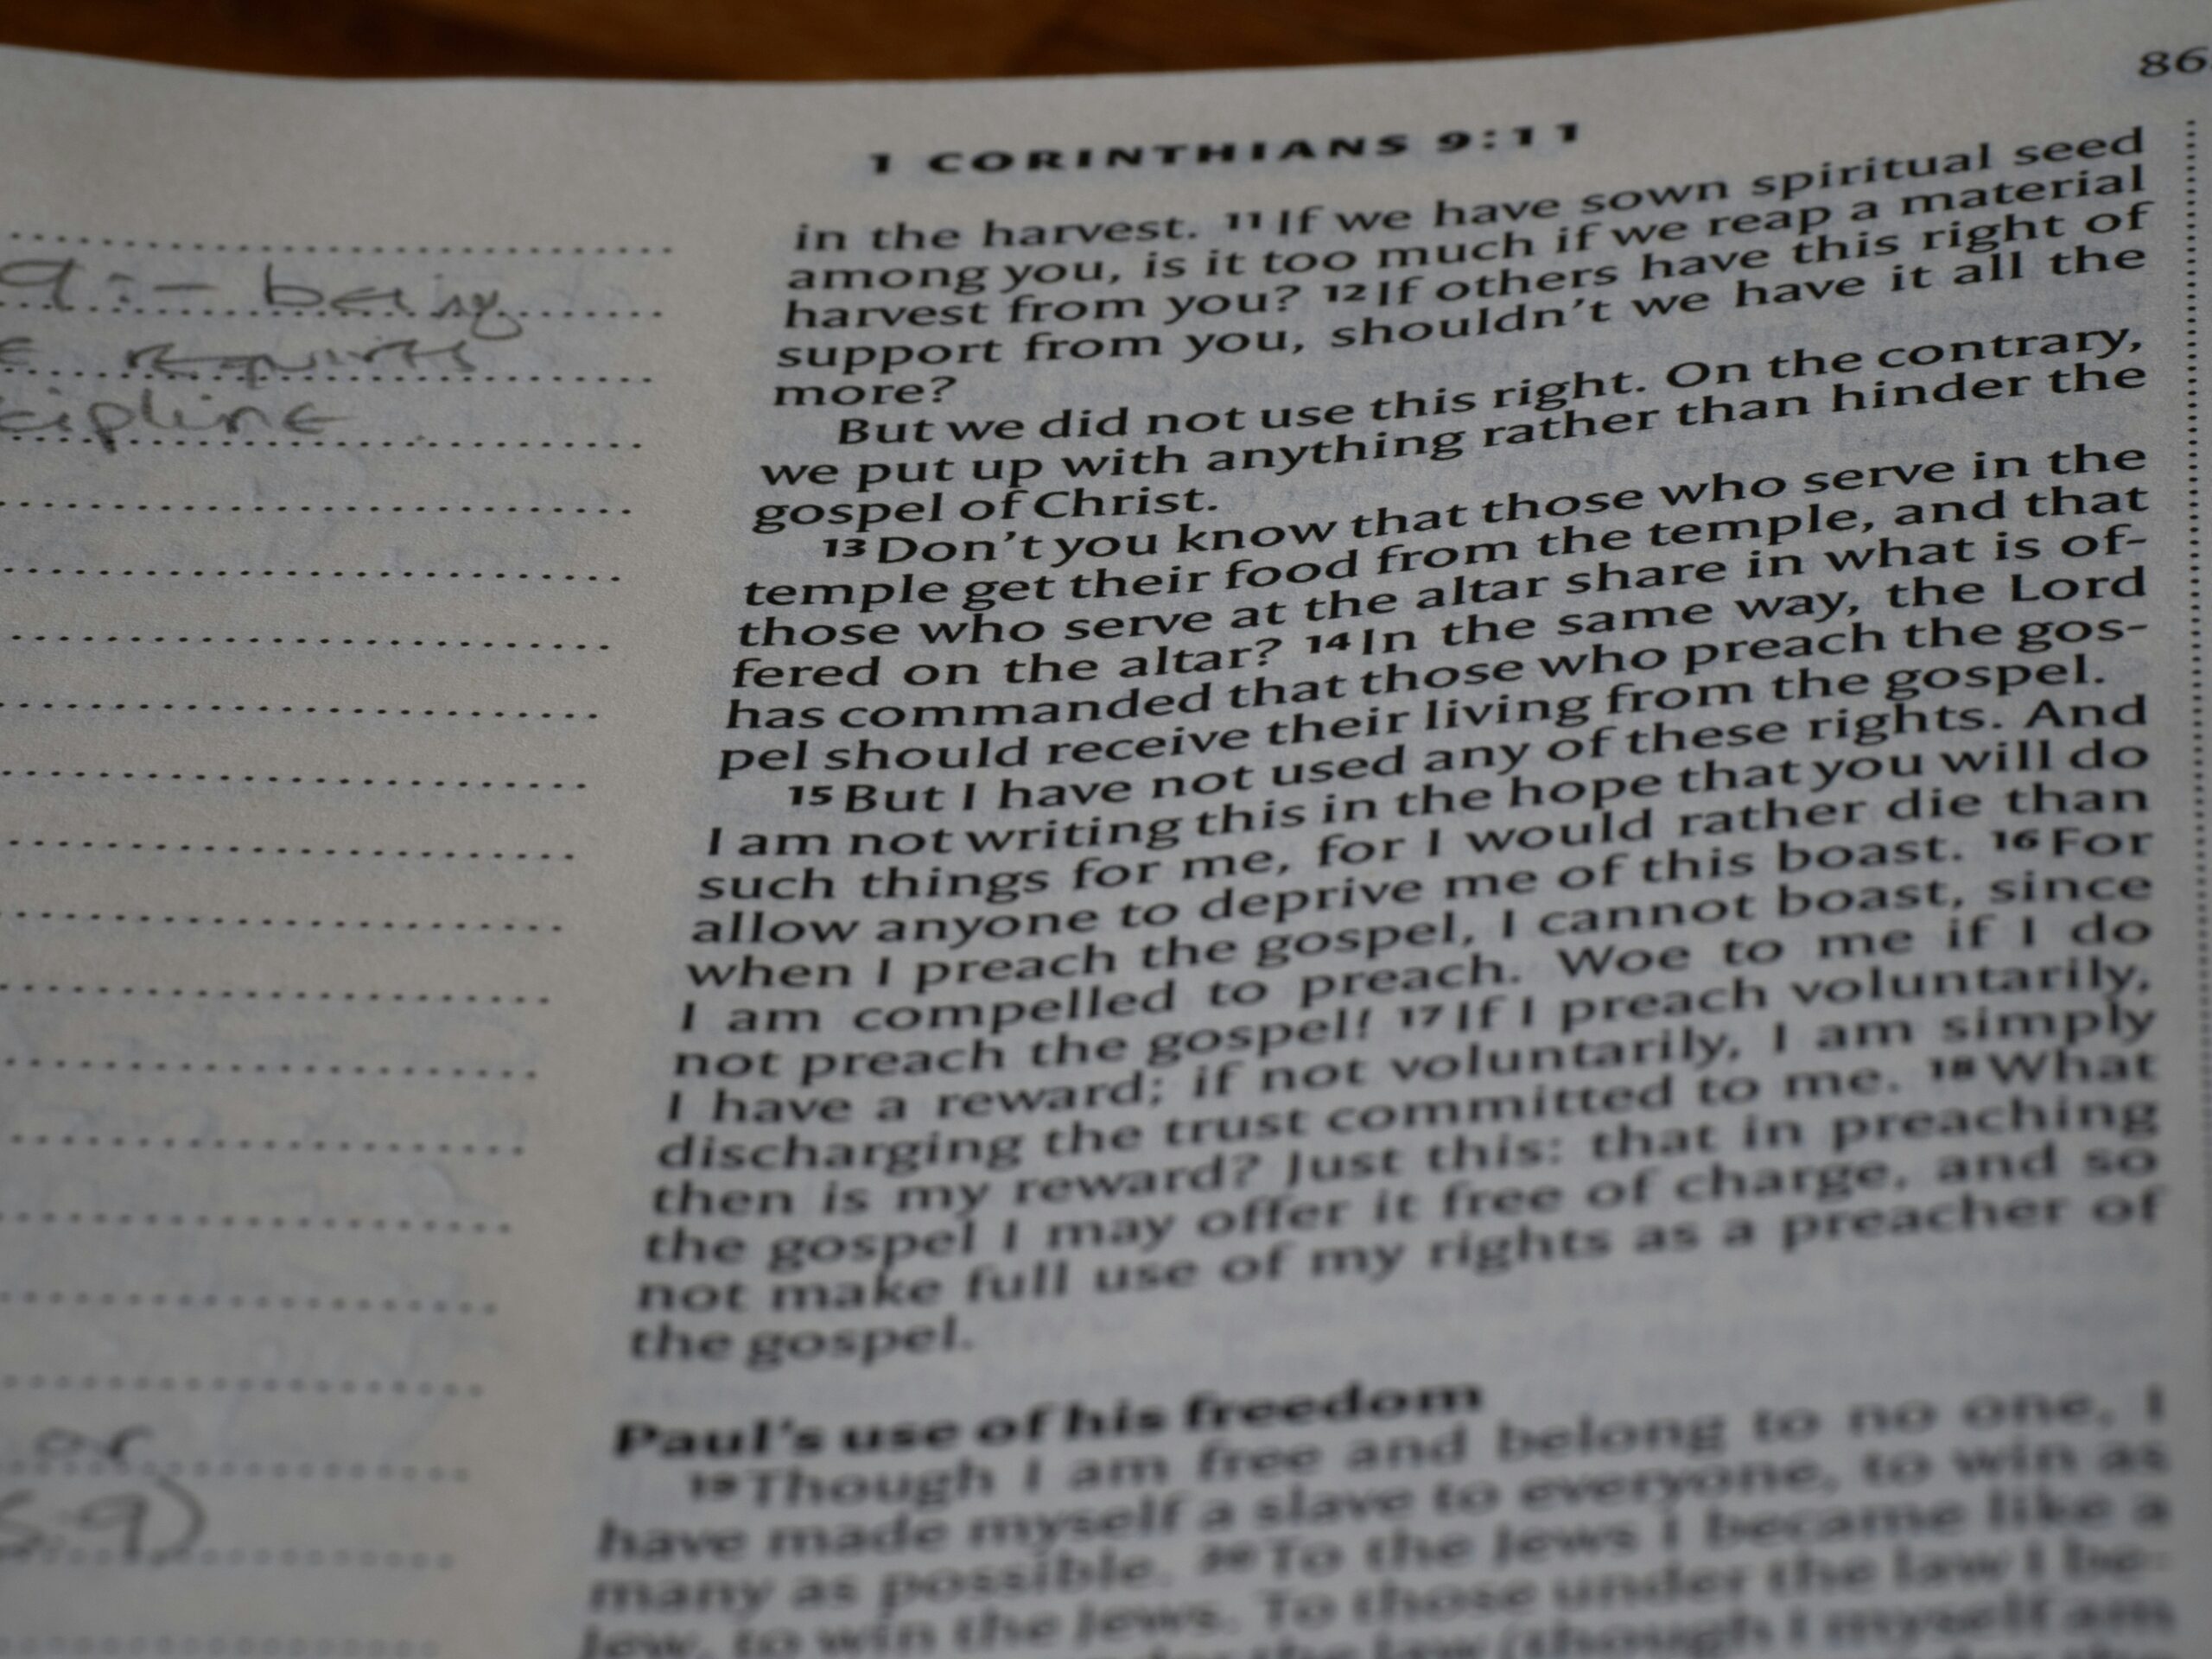 86
1 CORINTHIANS 9:11
9:- being
requires
cipline
or
5:9)
in the harvest. 11 If we have sown spiritual seed
among you, is it too much if we reap a material
harvest from you? 12 If others have this right of
support from you, shouldn't we have it all the
more?
But we did not use this right. On the contrary,
we put up with anything rather than hinder the
gospel of Christ.
13 Don't you know that those who serve in the
temple get their food from the temple, and that
those who serve at the altar share in what is of-
fered on the altar? 14 In the same way, the Lord
has commanded that those who preach the gos-
pel should receive their living from the gospel.
15 But I have not used any of these rights. And
I am not writing this in the hope that you will do
such things for me, for I would rather die than
allow anyone to deprive me of this boast. 16 For
when I preach the gospel, I cannot boast, since
I am compelled to preach. Woe to me if I do
not preach the gospel! 17 If I preach voluntarily,
I have a reward; if not voluntarily, I am simply
discharging the trust committed to me. 18 What
then is my reward? Just this: that in preaching
the gospel I may offer it free of charge, and so
not make full use of my rights as a preacher of
the gospel.
Paul's use of his freedom
19 Though I am free and belong to no one, I
have made myself a slave to everyone, to win as
many as possible. 20 To the Jews I became like a
Jew, to win the Jews. To those under the law I be-
the law (though I myself am